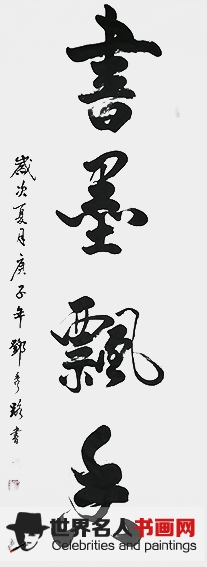 書墨飄香
歲次夏月庚子年鄧秀路書
世界名人书画网
Celebrities and paintings